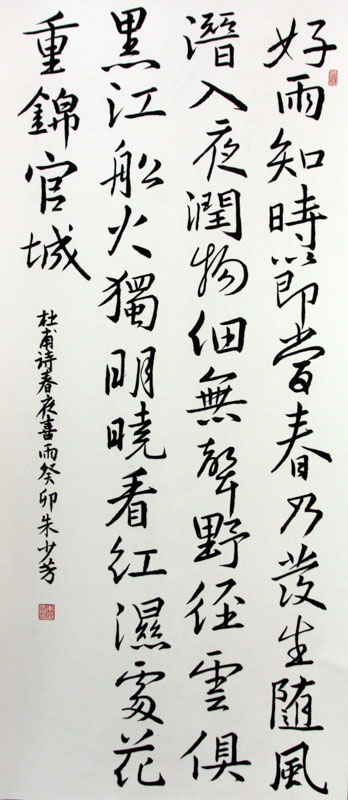 好雨知時節當春乃發生随風
潛入夜潤物細無聲野径雲俱
黑江船火獨明曉看紅濕處花
重錦官城
杜甫诗春夜喜雨癸卯朱少芳